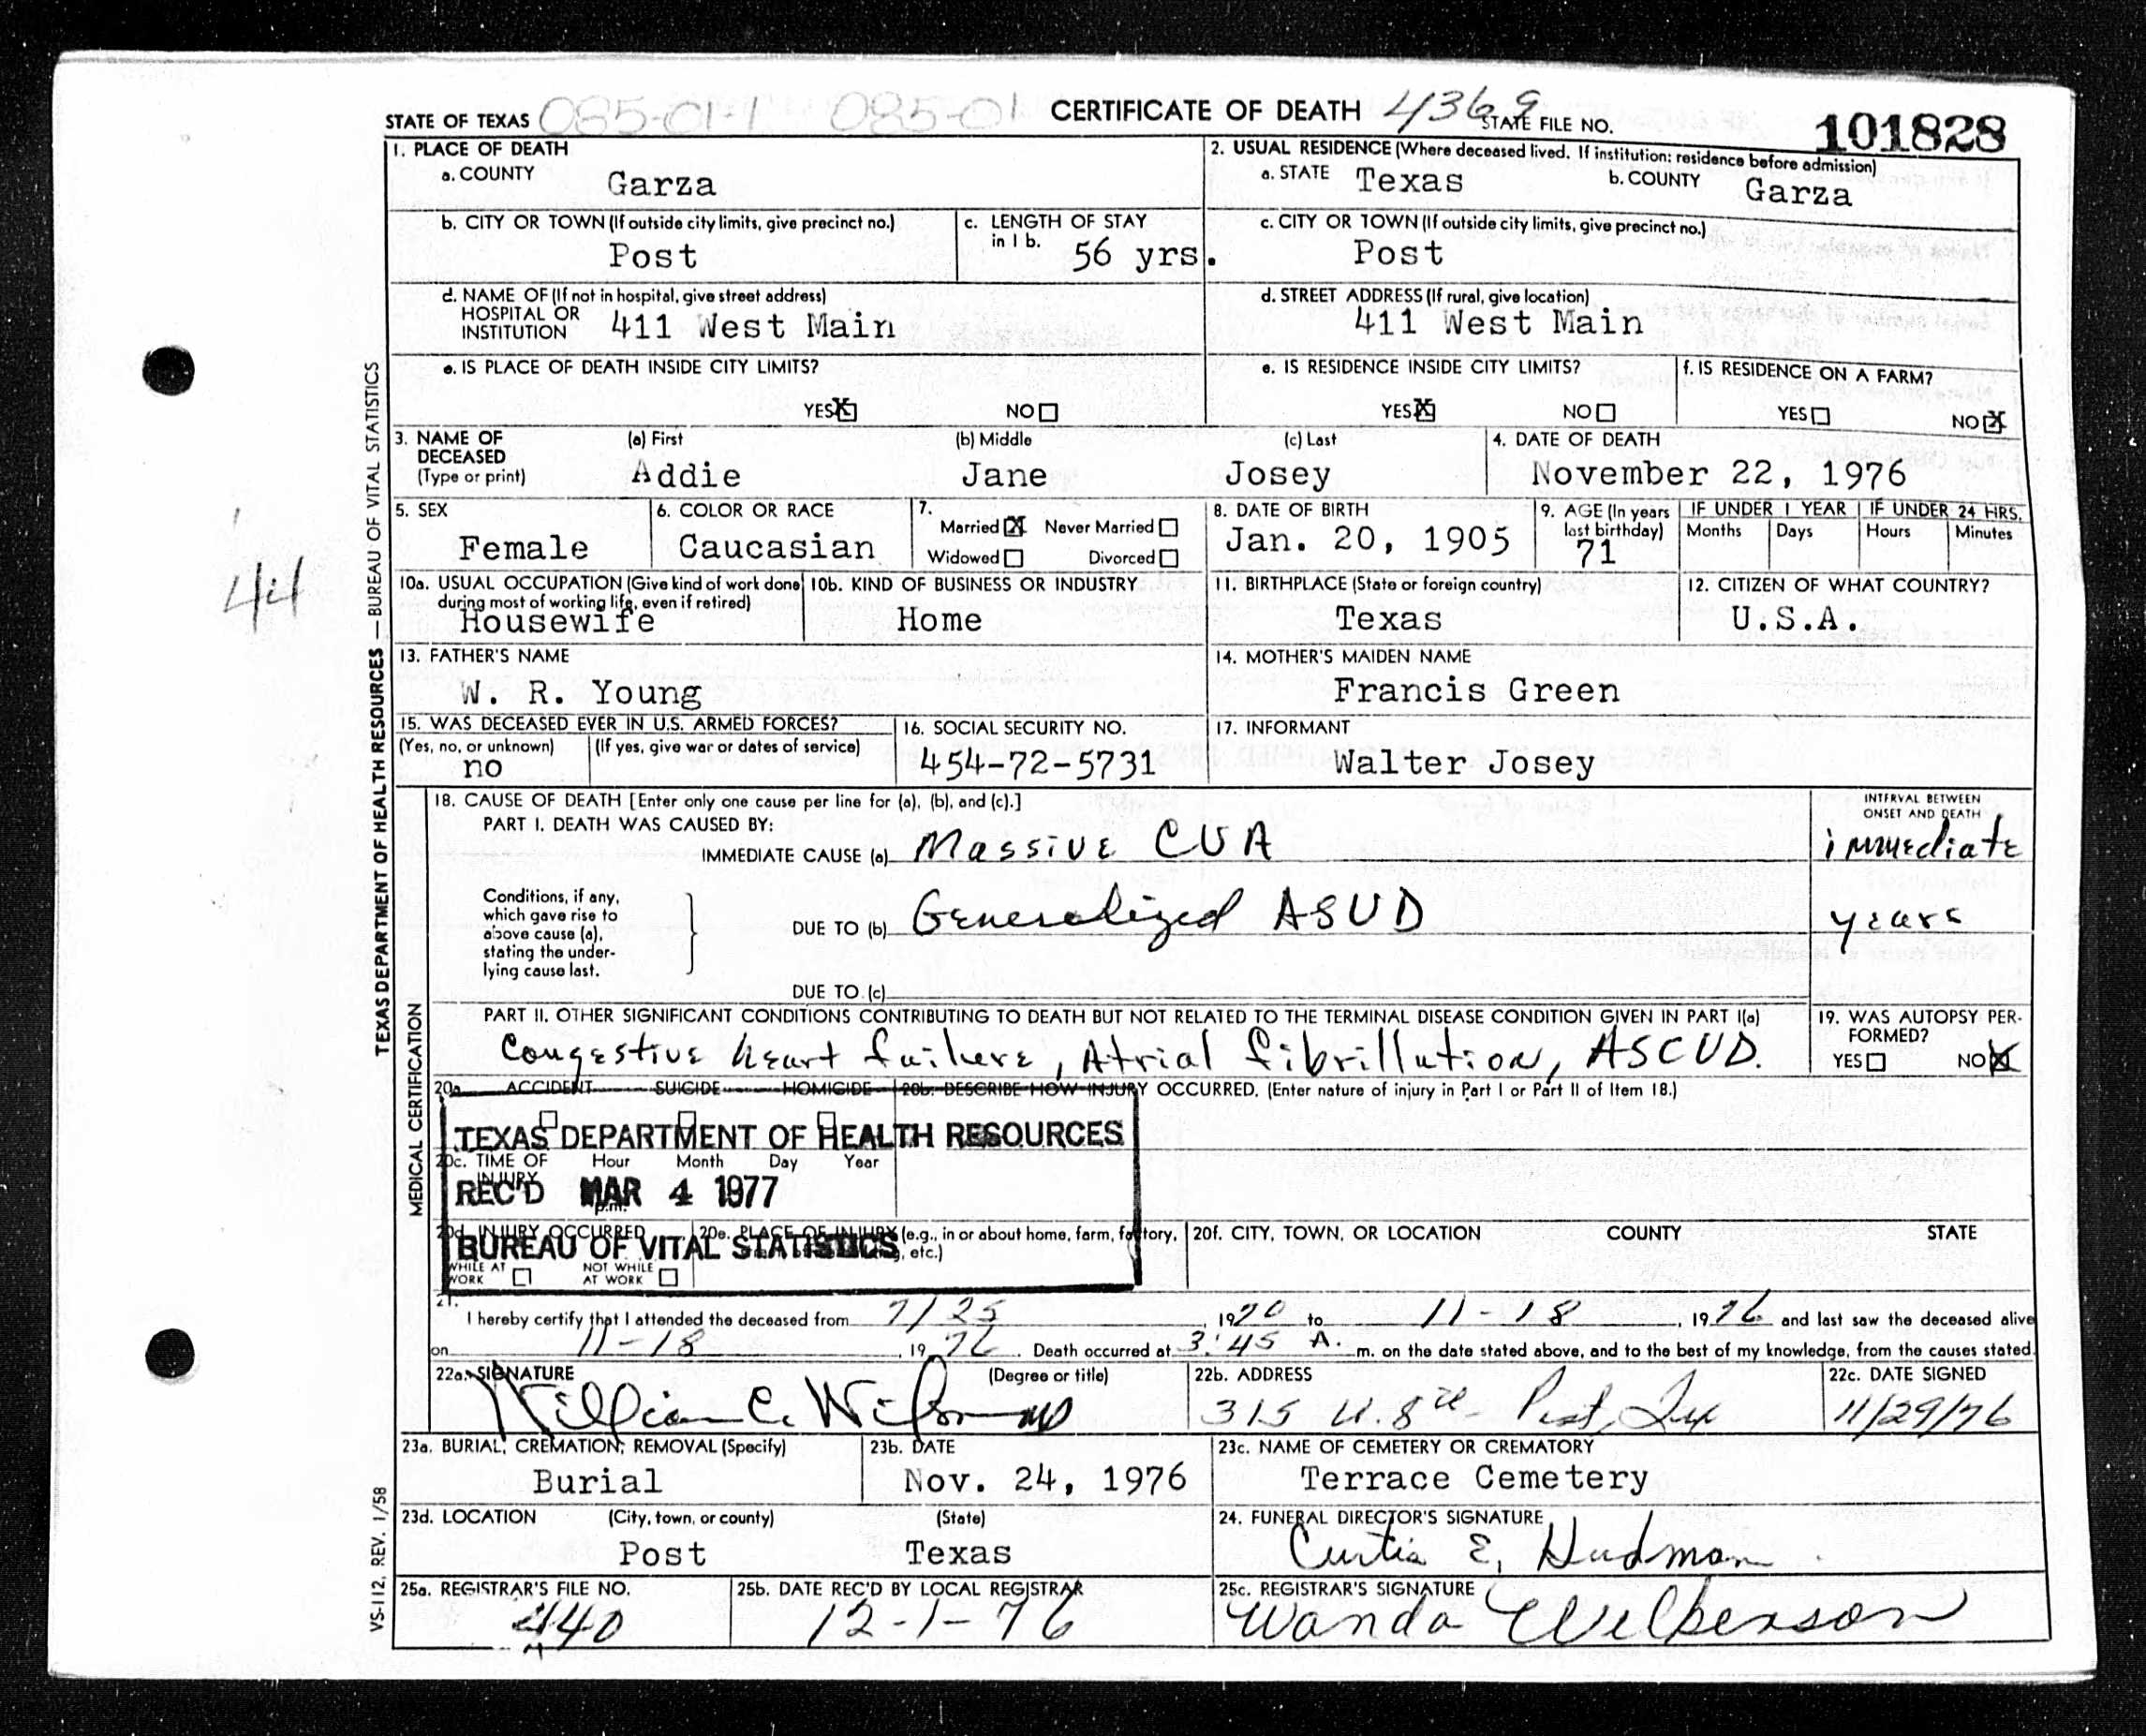 STATE OF TEXAS 085-01-1 085-01 CERTIFICATE OF DEATH 4369 STATE FILE NO. 101828
1. PLACE OF DEATH
a. COUNTY Garza
2. USUAL RESIDENCE (Where deceased lived. If institution: residence before admission)
a. STATE Texas b. COUNTY Garza
b. CITY OR TOWN (If outside city limits, give precinct no.) Post
c. LENGTH OF STAY in 1 b. 56 yrs.
c. CITY OR TOWN (If outside city limits, give precinct no.) Post
d. NAME OF (If not in hospital, give street address)
HOSPITAL OR
INSTITUTION 411 West Main
d. STREET ADDRESS (If rural, give location)
411 West Main
e. IS PLACE OF DEATH INSIDE CITY LIMITS?
YES X NO
e. IS RESIDENCE INSIDE CITY LIMITS?
YES X NO
f. IS RESIDENCE ON A FARM?
YES NO X
3. NAME OF DECEASED (Type or print)
(a) First Addie (b) Middle Jane (c) Last Josey
4. DATE OF DEATH
November 22, 1976
5. SEX
Female
6. COLOR OR RACE
Caucasian
7. Married X Never Married
Widowed Divorced
8. DATE OF BIRTH
Jan. 20, 1905
9. AGE (In years last birthday) 71
IF UNDER 1 YEAR IF UNDER 24 HRS.
Months Days Hours Minutes
10a. USUAL OCCUPATION (Give kind of work done during most of working life, even if retired)
Housewife
10b. KIND OF BUSINESS OR INDUSTRY
Home
11. BIRTHPLACE (State or foreign country)
Texas
12. CITIZEN OF WHAT COUNTRY?
U.S.A.
13. FATHER'S NAME
W. R. Young
14. MOTHER'S MAIDEN NAME
Francis Green
15. WAS DECEASED EVER IN U.S. ARMED FORCES?
(Yes, no, or unknown) (If yes, give war or dates of service)
no
16. SOCIAL SECURITY NO.
454-72-5731
17. INFORMANT
Walter Josey
18. CAUSE OF DEATH [Enter only one cause per line for (a), (b), and (c).]
PART I. DEATH WAS CAUSED BY:
IMMEDIATE CAUSE (a) Massive CVA
INTERVAL BETWEEN
ONSET AND DEATH
immediate
Conditions, if any,
which gave rise to
above cause (a),
stating the under-
lying cause last.
DUE TO (b) Generalized ASVD
years
DUE TO (c)
PART II. OTHER SIGNIFICANT CONDITIONS CONTRIBUTING TO DEATH BUT NOT RELATED TO THE TERMINAL DISEASE CONDITION GIVEN IN PART I(a)
Congestive heart failure, Atrial fibrillation, ASCVD.
19. WAS AUTOPSY PER-
FORMED?
YES NO X
20a. ACCIDENT SUICIDE HOMICIDE
20b. DESCRIBE HOW INJURY OCCURRED. (Enter nature of injury in Part I or Part II of Item 18.)
TEXAS DEPARTMENT OF HEALTH RESOURCES
20c. TIME OF INJURY Hour Month Day Year
p.m.
REC'D MAR 4 1977
20d. INJURY OCCURRED
WHILE AT WORK NOT WHILE AT WORK
20e. PLACE OF INJURY (e.g., in or about home, farm, factory, etc.)
BUREAU OF VITAL STATISTICS
20f. CITY, TOWN, OR LOCATION COUNTY STATE
21.
I hereby certify that I attended the deceased from 7/25, 1970 to 11-18, 1976 and last saw the deceased alive
on 11-18, 1976. Death occurred at 3:45 A. m. on the date stated above, and to the best of my knowledge, from the causes stated.
22a. SIGNATURE (Degree or title)
William C. Wilson MD
22b. ADDRESS
315 W. 8th Post, Tex
22c. DATE SIGNED
11/29/76
23a. BURIAL, CREMATION, REMOVAL (Specify)
Burial
23b. DATE
Nov. 24, 1976
23c. NAME OF CEMETERY OR CREMATORY
Terrace Cemetery
23d. LOCATION (City, town, or county) (State)
Post Texas
24. FUNERAL DIRECTOR'S SIGNATURE
Curtis E. Hudman
25a. REGISTRAR'S FILE NO.
440
25b. DATE REC'D BY LOCAL REGISTRAR
12-1-76
25c. REGISTRAR'S SIGNATURE
Wanda Wilkerson
TEXAS DEPARTMENT OF HEALTH RESOURCES — BUREAU OF VITAL STATISTICS
MEDICAL CERTIFICATION
VS-112, REV. 1/58